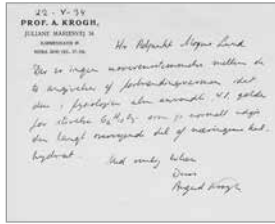 22-V-34
PROF. A. KROGH,
JULIANE MARIESVEJ 34
Hr Mogens Lund
Der er ingen uoverensstemmelse mellem de
to angivelser af forbrændingsvarmen, idet
den i fysiologien alm anvendte 4.1 gælder
for stivelse C₆H₁₀O₅ som jo normalt udgør
den langt overvejende del af næringens kul-
hydrat.
Med venlig hilsen
Deres
August Krogh